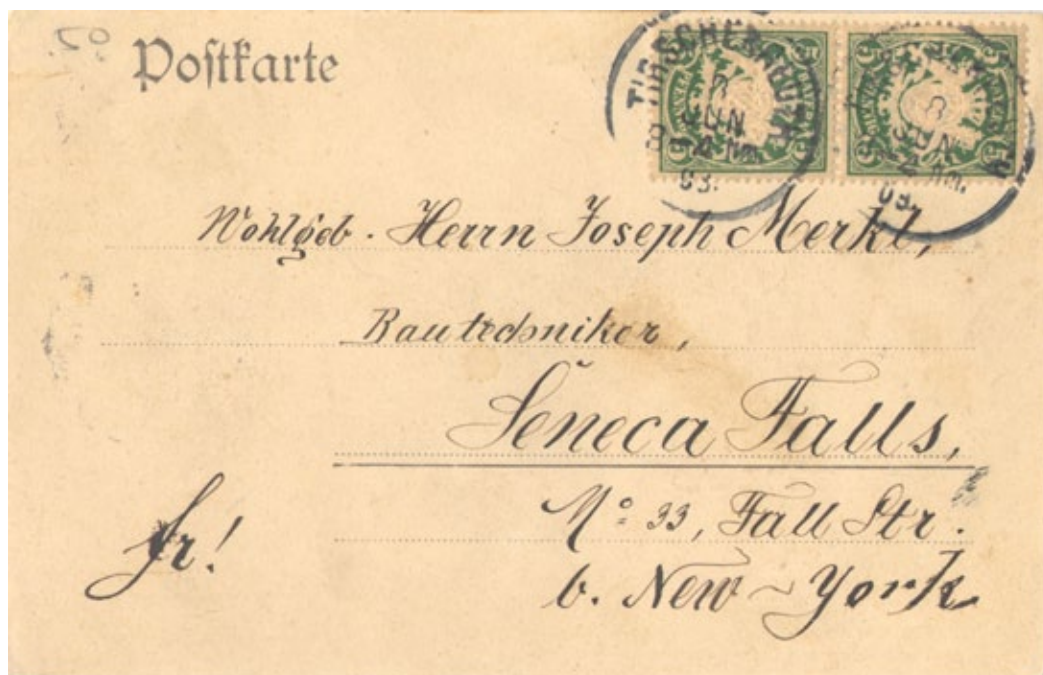 50
Postkarte
TIRSCHENREUTH
8
JUN
03.
8
JUN
03.
Wohlgeb. Herrn Joseph Merkl,
Bautechniker,
Seneca Falls,
No 33, Fall Str.
fr!
b. New-York